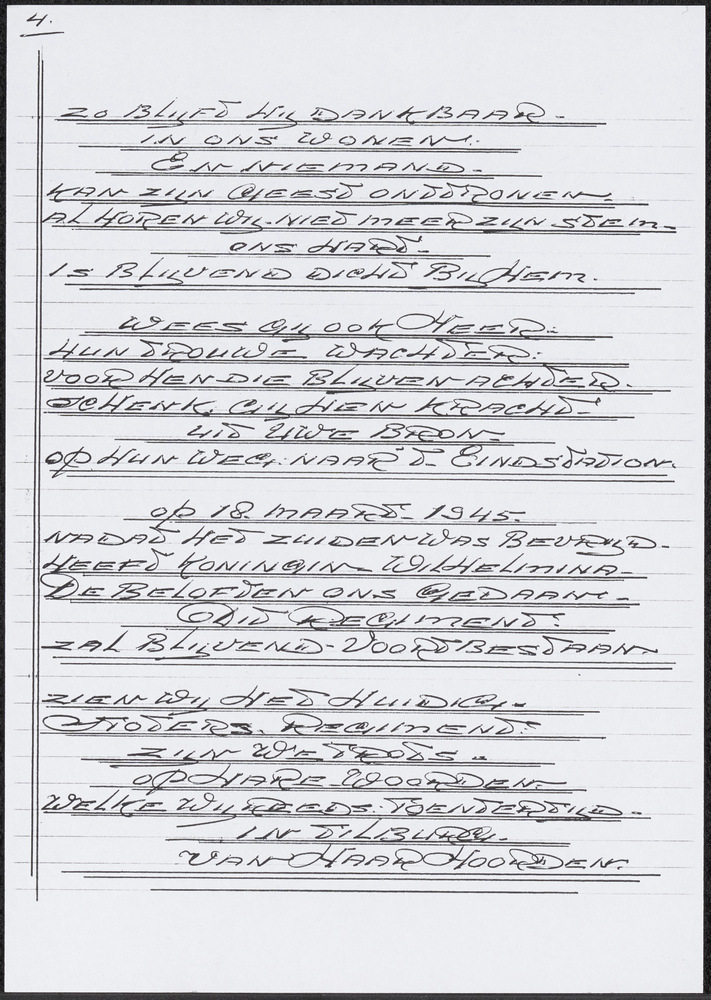 4.
ZO BLIJFT HIJ DANKBAAR -
IN ONS WONEN.
EN NIEMAND -
KAN ZIJN GEEST ONTTRONEN -
AL HOREN WIJ - NIET MEER ZIJN STEM -
ONS HART -
IS BLIJVEND DICHT BIJ HEM.
WEES GIJ OOK HEER:
HUN TROUWE WACHTER:
VOOR HEN DIE BLIJVEN ACHTER -
SCHENK GIJ HEN KRACHT -
UIT UWE BRON -
OP HUN WEG: NAAR 'T - EINDSTATION.
OP 18 MAART - 1945.
NADAT HET ZUIDEN WAS BEVRIJD -
HEEFT KONINGIN - WILHELMINA -
DE BELOFTEN ONS GEDAAN: -
"DIT REGIMENT:
ZAL BLIJVEND - VOORTBESTAAN
ZIEN WIJ HET HUIDIG -
STOTERS. REGIMENT:
ZIJN WE TROTS -
OP HARE WOORDEN -
WELKE WIJ REEDS. TOENTERTIJD -
IN TILBURG -
VAN HAAR HOORDEN.